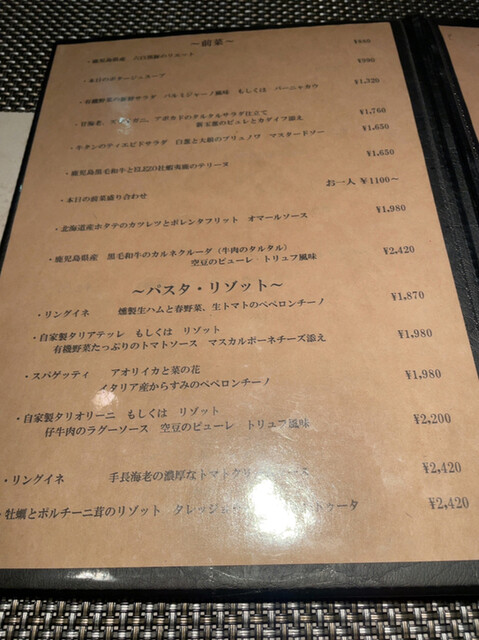 ～前菜～
・鹿児島県産 六白黒豚のリエット ¥880
・本日のポタージュスープ ¥990
・有機野菜の新鮮サラダ パルミジャーノ風味 もしくは バーニャカウ ¥1,320
・甘海老、ズワイガニ、アボカドのタルタルサラダ仕立て ¥1,760
新玉葱のピュレとカダイフ添え
・牛タンのティエピドサラダ 白葱と大根のブリュノワ マスタードソー ¥1,650
・鹿児島黒毛和牛と のテリーヌ ¥1,650
・本日の前菜盛り合わせ お一人 ¥1100～
・北海道産ホタテのカツレツとポレンタフリット オマールソース ¥1,980
・鹿児島県産 黒毛和牛のカルネクルーダ（牛肉のタルタル） ¥2,420
空豆のピューレ トリュフ風味
～パスタ・リゾット～
・リングイネ 燻製生ハムと春野菜、生トマトのペペロンチーノ ¥1,870
・自家製タリアテッレ もしくは リゾット ¥1,980
有機野菜たっぷりのトマトソース マスカルポーネチーズ添え
・スパゲッティ アオリイカと菜の花 ¥1,980
イタリア産からすみのペペロンチーノ
・自家製タリオリーニ もしくは リゾット ¥2,200
仔牛肉のラグーソース 空豆のピューレ トリュフ風味
・リングイネ 手長海老の濃厚なトマトクリームソース ¥2,420
・牡蠣とポルチーニ茸のリゾット タレッジョ ¥2,420